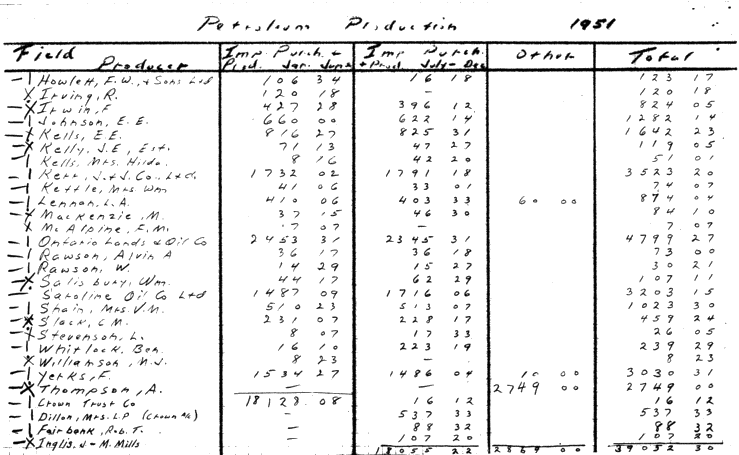 Petroleum Production 1951
Field Producer Imp. Purch. + Prod. Jan. June Imp Purch. + Prod. July - Dec Other Total
Howlett, F.W., + Sons Ltd 106 34 16 18 123 17
Irving, R. 120 18 — 120 18
Irwin, F 427 28 396 12 824 05
Johnson, E. E. 660 00 622 14 1282 14
Kells, E.E. 816 27 825 31 1642 23
Kelly, J.E., Est. 71 13 47 27 119 05
Kells, Mrs. Hilda. 8 16 42 20 51 01
Kerr, J. + J. Co. Ltd. 1732 02 1791 18 3523 20
Kettle, Mrs. Wm 41 06 33 01 74 07
Lennon, L.A. 410 06 403 33 60 00 874 04
Mackenzie, M. 37 15 46 30 84 10
McAlpine, F.M. 7 07 — 7 07
Ontario Lands & Oil Co 2453 31 2345 31 4799 27
Rawson, Alvin A 36 17 36 18 73 00
Rawson, W. 14 29 15 27 30 21
Salisbury, Wm. 44 17 62 29 107 11
Saroline Oil Co Ltd 1487 09 1716 06 3203 15
Shain, Mrs. V.M. 510 23 513 07 1023 30
Slack, C M. 231 07 228 17 459 24
Stevenson, L. 8 07 17 33 26 05
Whitlock, Ben. 16 10 223 19 239 29
Williamson, M.J. 8 23 — 8 23
Yerks, F. 1534 27 1486 04 10 00 3030 31
Thompson, A. — — 2749 00 2749 00
Crown Trust Co 18128 08 16 12 16 12
Dillon, Mrs. L.P (Crown a/c) — 537 33 537 33
Fairbank, Rob. T. — 88 32 88 32
Inglis, J - M. Mills — 107 20 107 20
18055 22 2869 00 39052 30